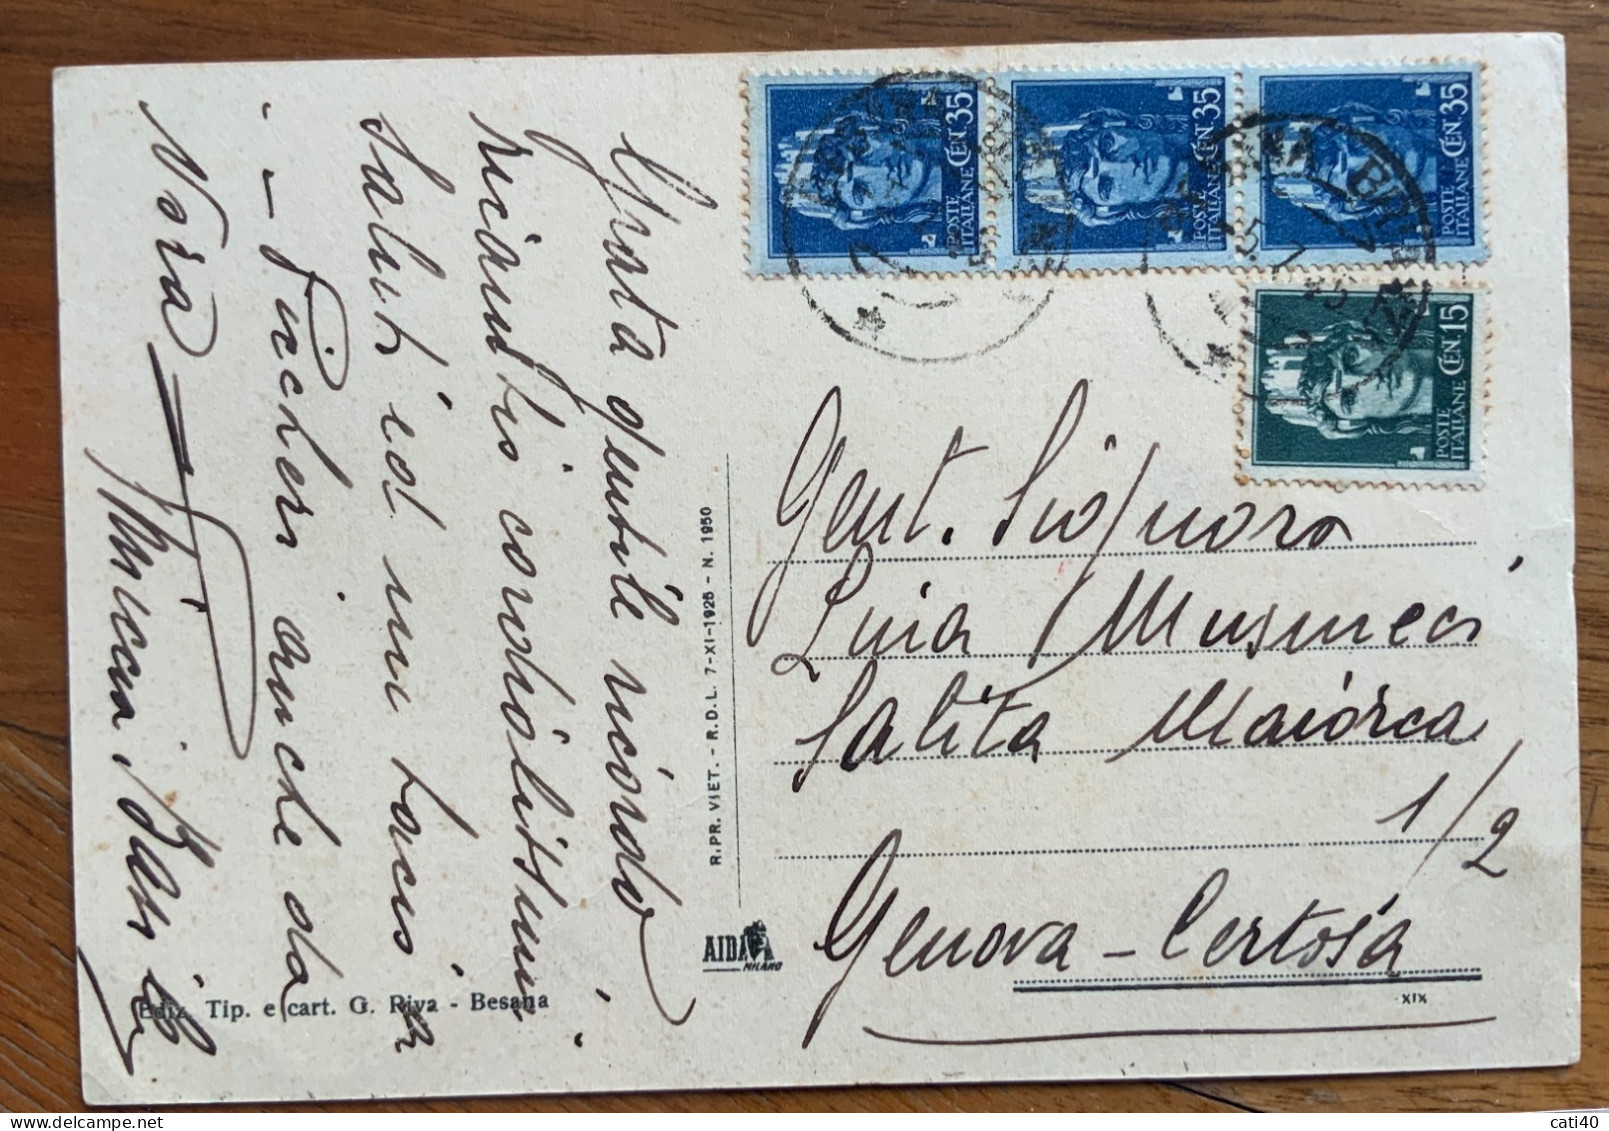 Grata gentile ricordo
ricambio cordialissimi
saluti ed un bacio
Pucheri anche da
Nora
POSTE ITALIANE CEN 35
POSTE ITALIANE CEN 35
POSTE ITALIANE CEN 35
POSTE ITALIANE CEN. 15
Gent. Signora
Luia Musumeci
Salita Maiorca
1/2
Genova - Certosa
R. PR. VIET. - R. D. L. 7-XI-1925 - N. 1950
AIDA
MILANO
Ediz. Tip. e cart. G. Riva - Besana
XIX
cati40